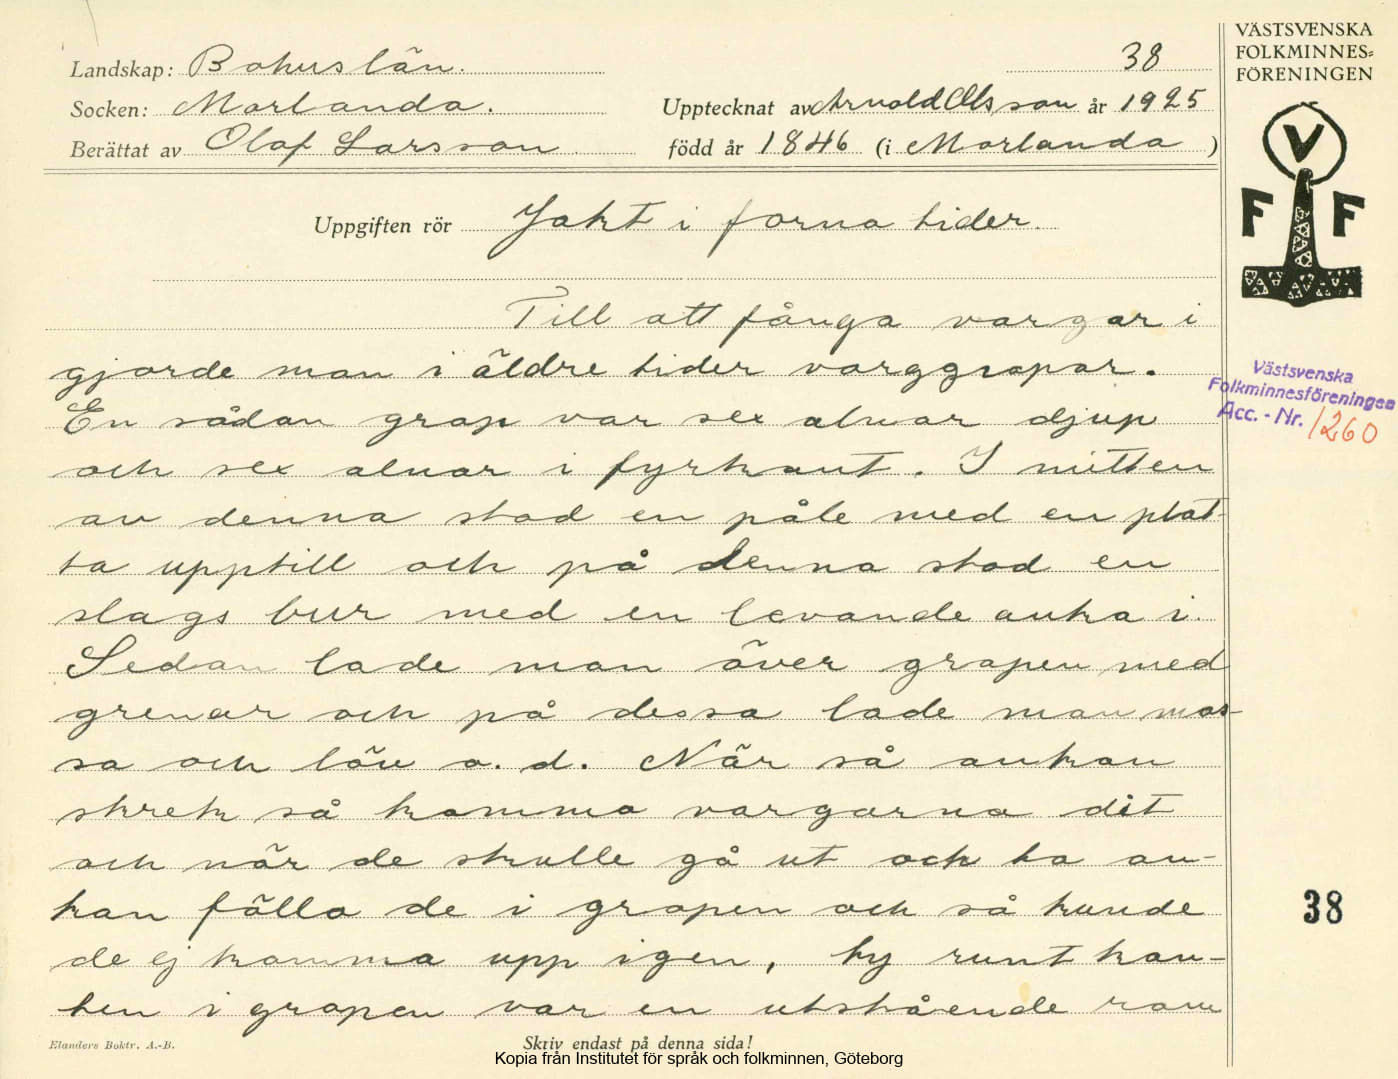 Landskap: Bohuslän.
Socken: Morlanda.
Berättat av Olof Larsson
38
Upptecknat av Arnold Olsson år 1925
född år 1846 (i Morlanda )
Uppgiften rör Jakt i forna tider.
Till att fånga vargar i
gjorde man i äldre tider varggropar.
En sådan grop var sex alnar djup
och sex alnar i fyrkant. I mitten
av denna stod en påle med en plat-
ta upptill och på denna stod en
slags bur med en levande anka i.
Sedan lade man över gropen med
grenar och på dessa lade man mos-
sa och löv o. d. När så ankan
skrek så komma vargarna dit
och när de skulle gå ut och ta an-
kan fälla de i gropen och så kunde
de ej komma upp igen, ty runt kan-
ten i gropen var en utstående ram
Elanders Boktr. A.-B.
Skriv endast på denna sida!
Kopia från Institutet för språk och folkminnen, Göteborg
VÄSTSVENSKA
FOLKMINNES-
FÖRENINGEN
V
F F
Västsvenska
Folkminnesföreningen
Acc. - Nr. 1260
38